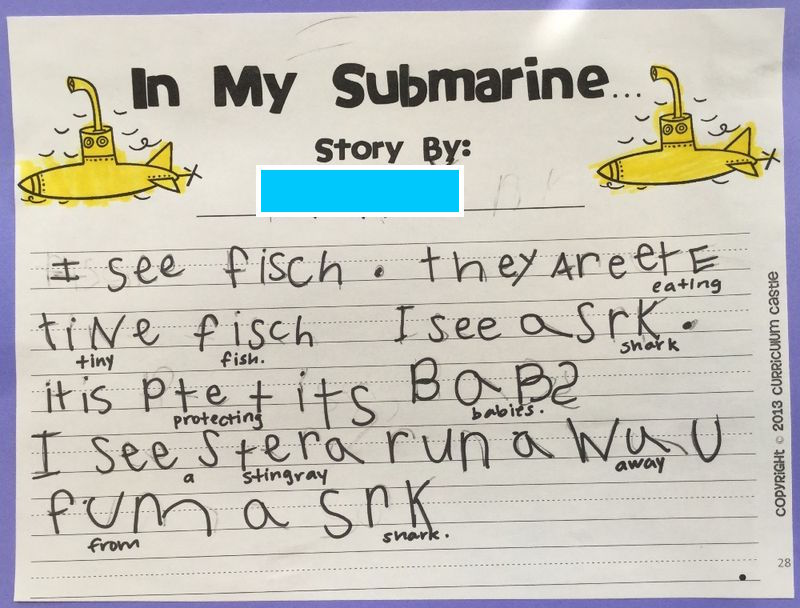 In My Submarine...
Story By:
I see fisch. they Are etE
eating
tiNe fisch I see a SrK.
tiny fish. shark
it is Ptet its BaBS
protecting babies.
I see Stera run a WaU
a stingray away
fum a SrK
from shark.
COPYRIGHT © 2013 CURRICULUM CASTLE
28